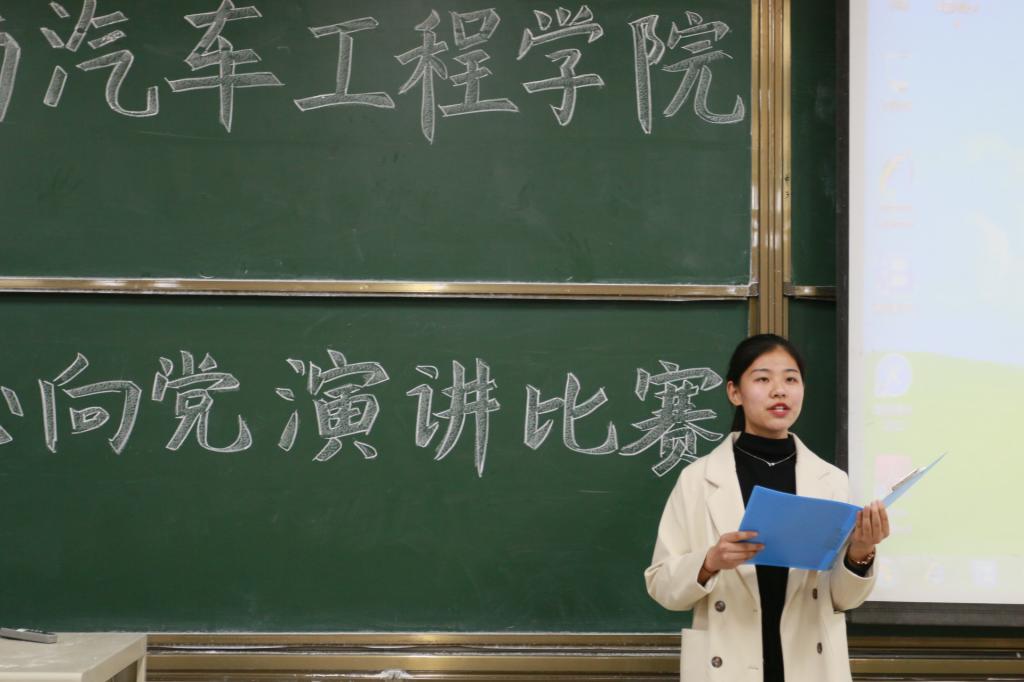 汽车工程学院
心向党演讲比赛